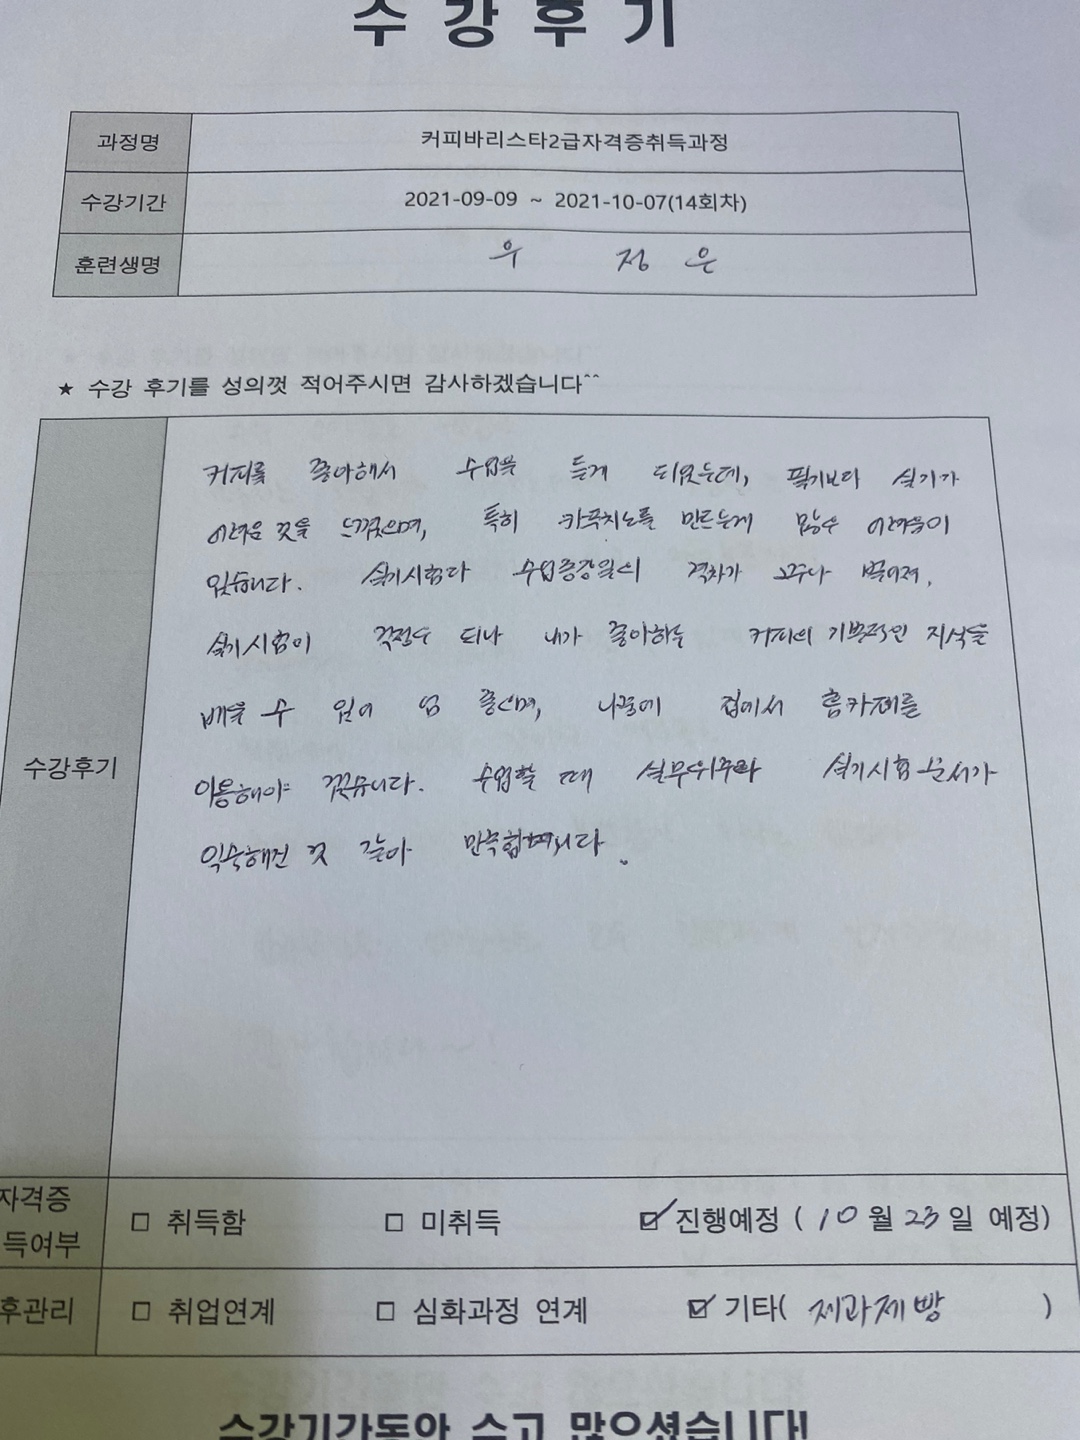 수 강 후 기
과정명 커피바리스타2급자격증취득과정
수강기간 2021-09-09 ~ 2021-10-07(14회차)
훈련생명 우 정 은
★ 수강 후기를 성의껏 적어주시면 감사하겠습니다^^
커피를 좋아해서 수업을 듣게 되었는데, 필기보다 실기가
어려운 것을 느꼈으며, 특히 카푸치노를 만드는게 많은 어려움이
있습니다. 실기시험과 격차가
실기시험이 걱정은 되나 내가 좋아하는 커피의 기본적인 지식을
수강후기
배울 수 있어 좋으며, 나중에 집에서 홈카페를
이용해야 겠습니다. 수업할 때 실무위주와 실기시험 순서가
익숙해진 것 같아 만족합니다.
자격증
득여부
□ 취득함 □ 미취득 ☑ 진행예정 ( 10 월 23 일 예정)
후관리 □ 취업연계 □ 심화과정 연계 ☑ 기타( 제과제빵 )
수강기간동안 수고 많으셨습니다!